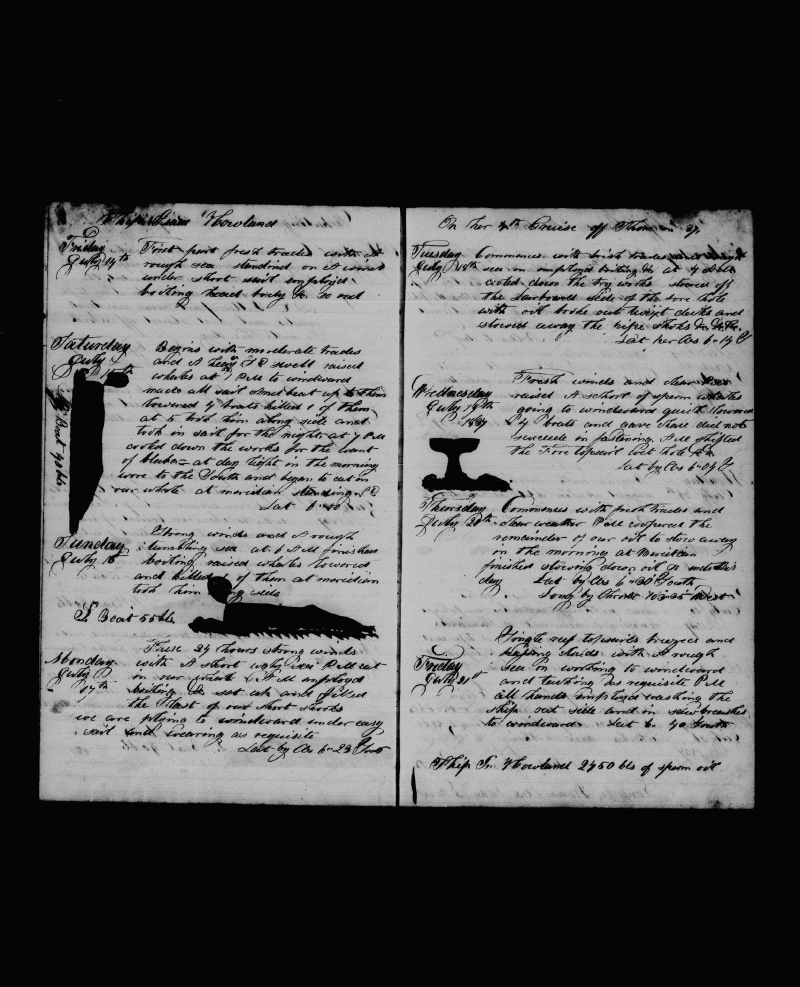 Ship Isaac Howland
Friday
July 14th
First part fresh trades with a
rough sea standing on a wind
under short sail employed
boiling head &c so end
Saturday
July
15th
Begins with moderate trades
and A heavy S E swell raised
whales at 1 PM to windward
made all sail and beat up to them
lowered 4 boats killed 1 of them
at 5 took him along side and
took in sail for the night at 7 PM
cooled down the works for the want
of blubber at day light in the morning
wore to the South and began to cut in
our whale at meridian standing S E
Lat 6
Boat 40 bls
Sunday
July 16
Strong winds and A rough
tumbling sea at 6 PM finished
boiling raised whales lowered
and killed of them at meridian
took him side
S Boat 55 bls
Monday
July
17th
These 24 hours strong winds
with A short ugly sea PM cut
in our whale employed
boiling &c set up and filled
the last of our short shooks
we are plying to windward under easy
sail and wearing as requisite
Lat by Obs 6" 23 South
On her 4th Cruise off Shore in 37
Tuesday
July 18th
Commences with brisk trades
sea on employed boiling &c at 4
cooled down the try works stowed off
the Larboard side of the fore hole
with oil broke out twixt decks and
stowed away the pipe shooks &c &c
Lat per Obs 6" 14 S
Wednesday
July 19th
1837
Fresh winds and clear
raised A school of sperm whales
going to windward quick lowered
4 boats and gave chase did not
succeed in fastening PM shifted
the Fore topsail Cut hole
Lat by Obs 6" 09 S
Thursday
July 20th
Commences with fresh trades and
clear weather PM coopered the
remainder of our oil to stow away
in the morning at Meridian
finished stowing down oil
day Lat by Obs 6" 30 South
Long by Chron West
Friday
July 21st
Single reef topsails breezes and
flying clouds with A rough
sea on working to windward
and tacking as requisite PM
all hands employed washing the
ship out side and in saw breaches
to windward Lat 6" 40 South
Ship Is Howland 2450 bls of sperm oil